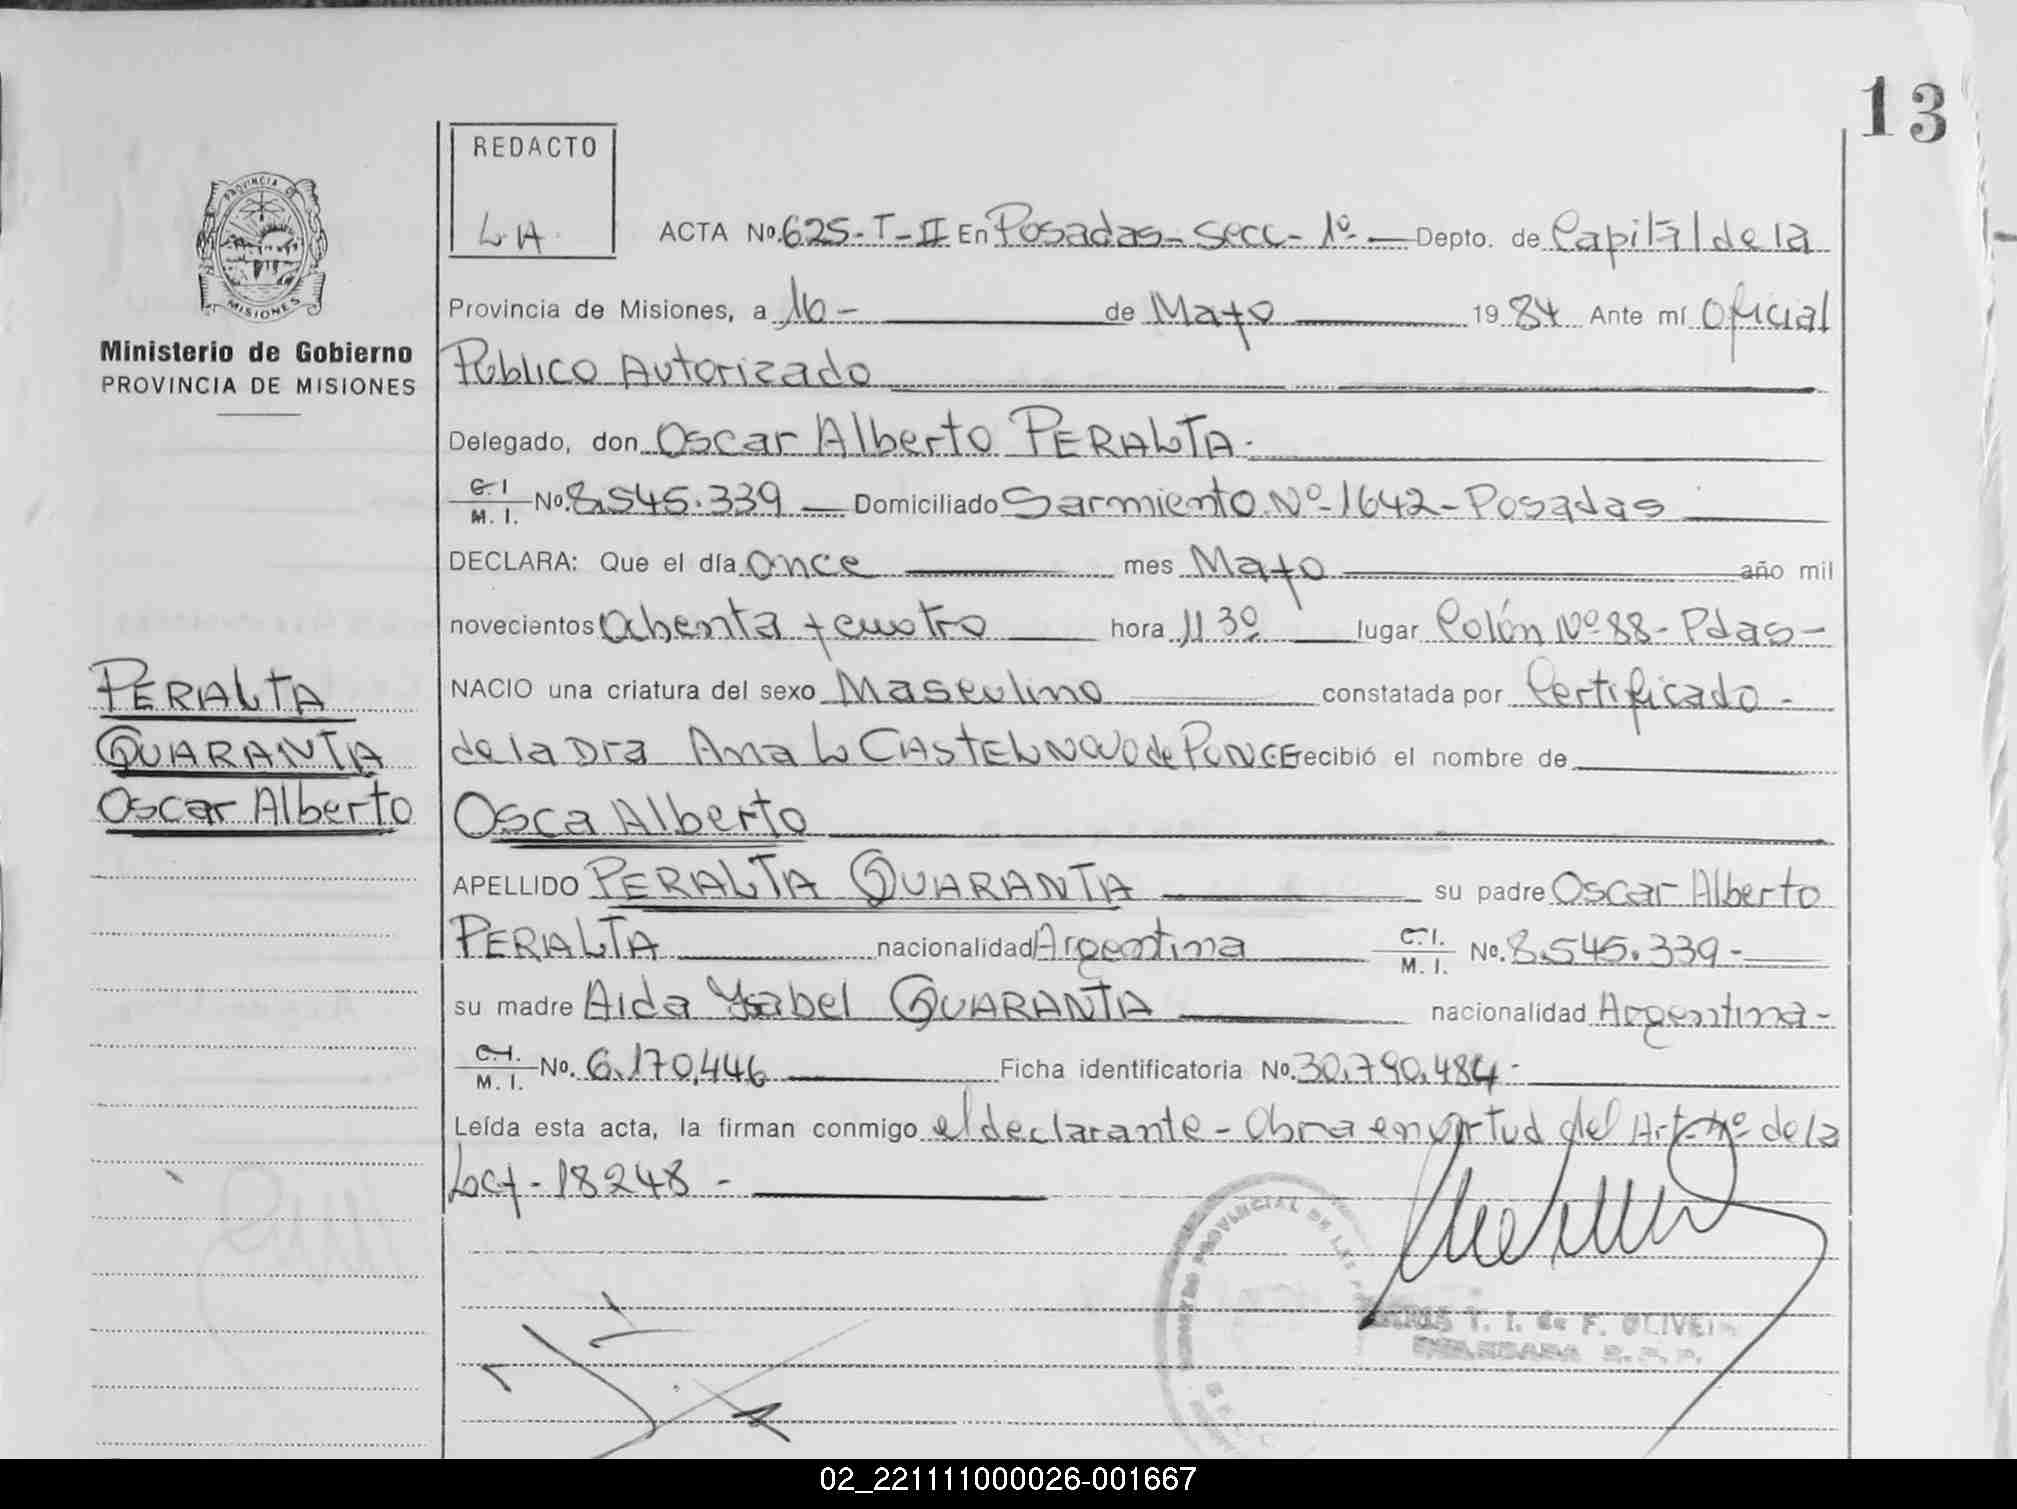 13
REDACTO
LA
ACTA No. 625-T-II En Posadas- Secc- 1º- Depto. de Capital de la
Provincia de Misiones, a 16- de Mayo 1984 Ante mí Oficial
Público Autorizado
Delegado, don Oscar Alberto PERALTA-
C. I. M. I. No. 8,545.339 Domiciliado Sarmiento Nº-1642-Posadas
DECLARA: Que el día once mes Mayo año mil
novecientos ochenta y cuatro hora 1130 lugar Colón Nº 88- Pdas-
NACIO una criatura del sexo Masculino constatada por Certificado-
de la Dra Ana L CASTELNOVO de PONCE recibió el nombre de
Osca Alberto
APELLIDO PERALTA QUARANTA su padre Oscar Alberto
PERALTA nacionalidad Argentina C. I. M. I. No. 8.545.339-
su madre Aida Ysabel QUARANTA nacionalidad Argentina-
C. I. M. I. No. 6.170,446 Ficha identificatoria No. 30.790.484-
Leída esta acta, la firman conmigo el declarante- Obra en virtud del Art-4º de la
Ley- 18248 -
PROVINCIA DE
MISIONES
Ministerio de Gobierno
PROVINCIA DE MISIONES
PERALTA
QUARANTA
Oscar Alberto
PROVINCIAL DE LAS
T. I. de F. OLIVEI
02_221111000026-001667